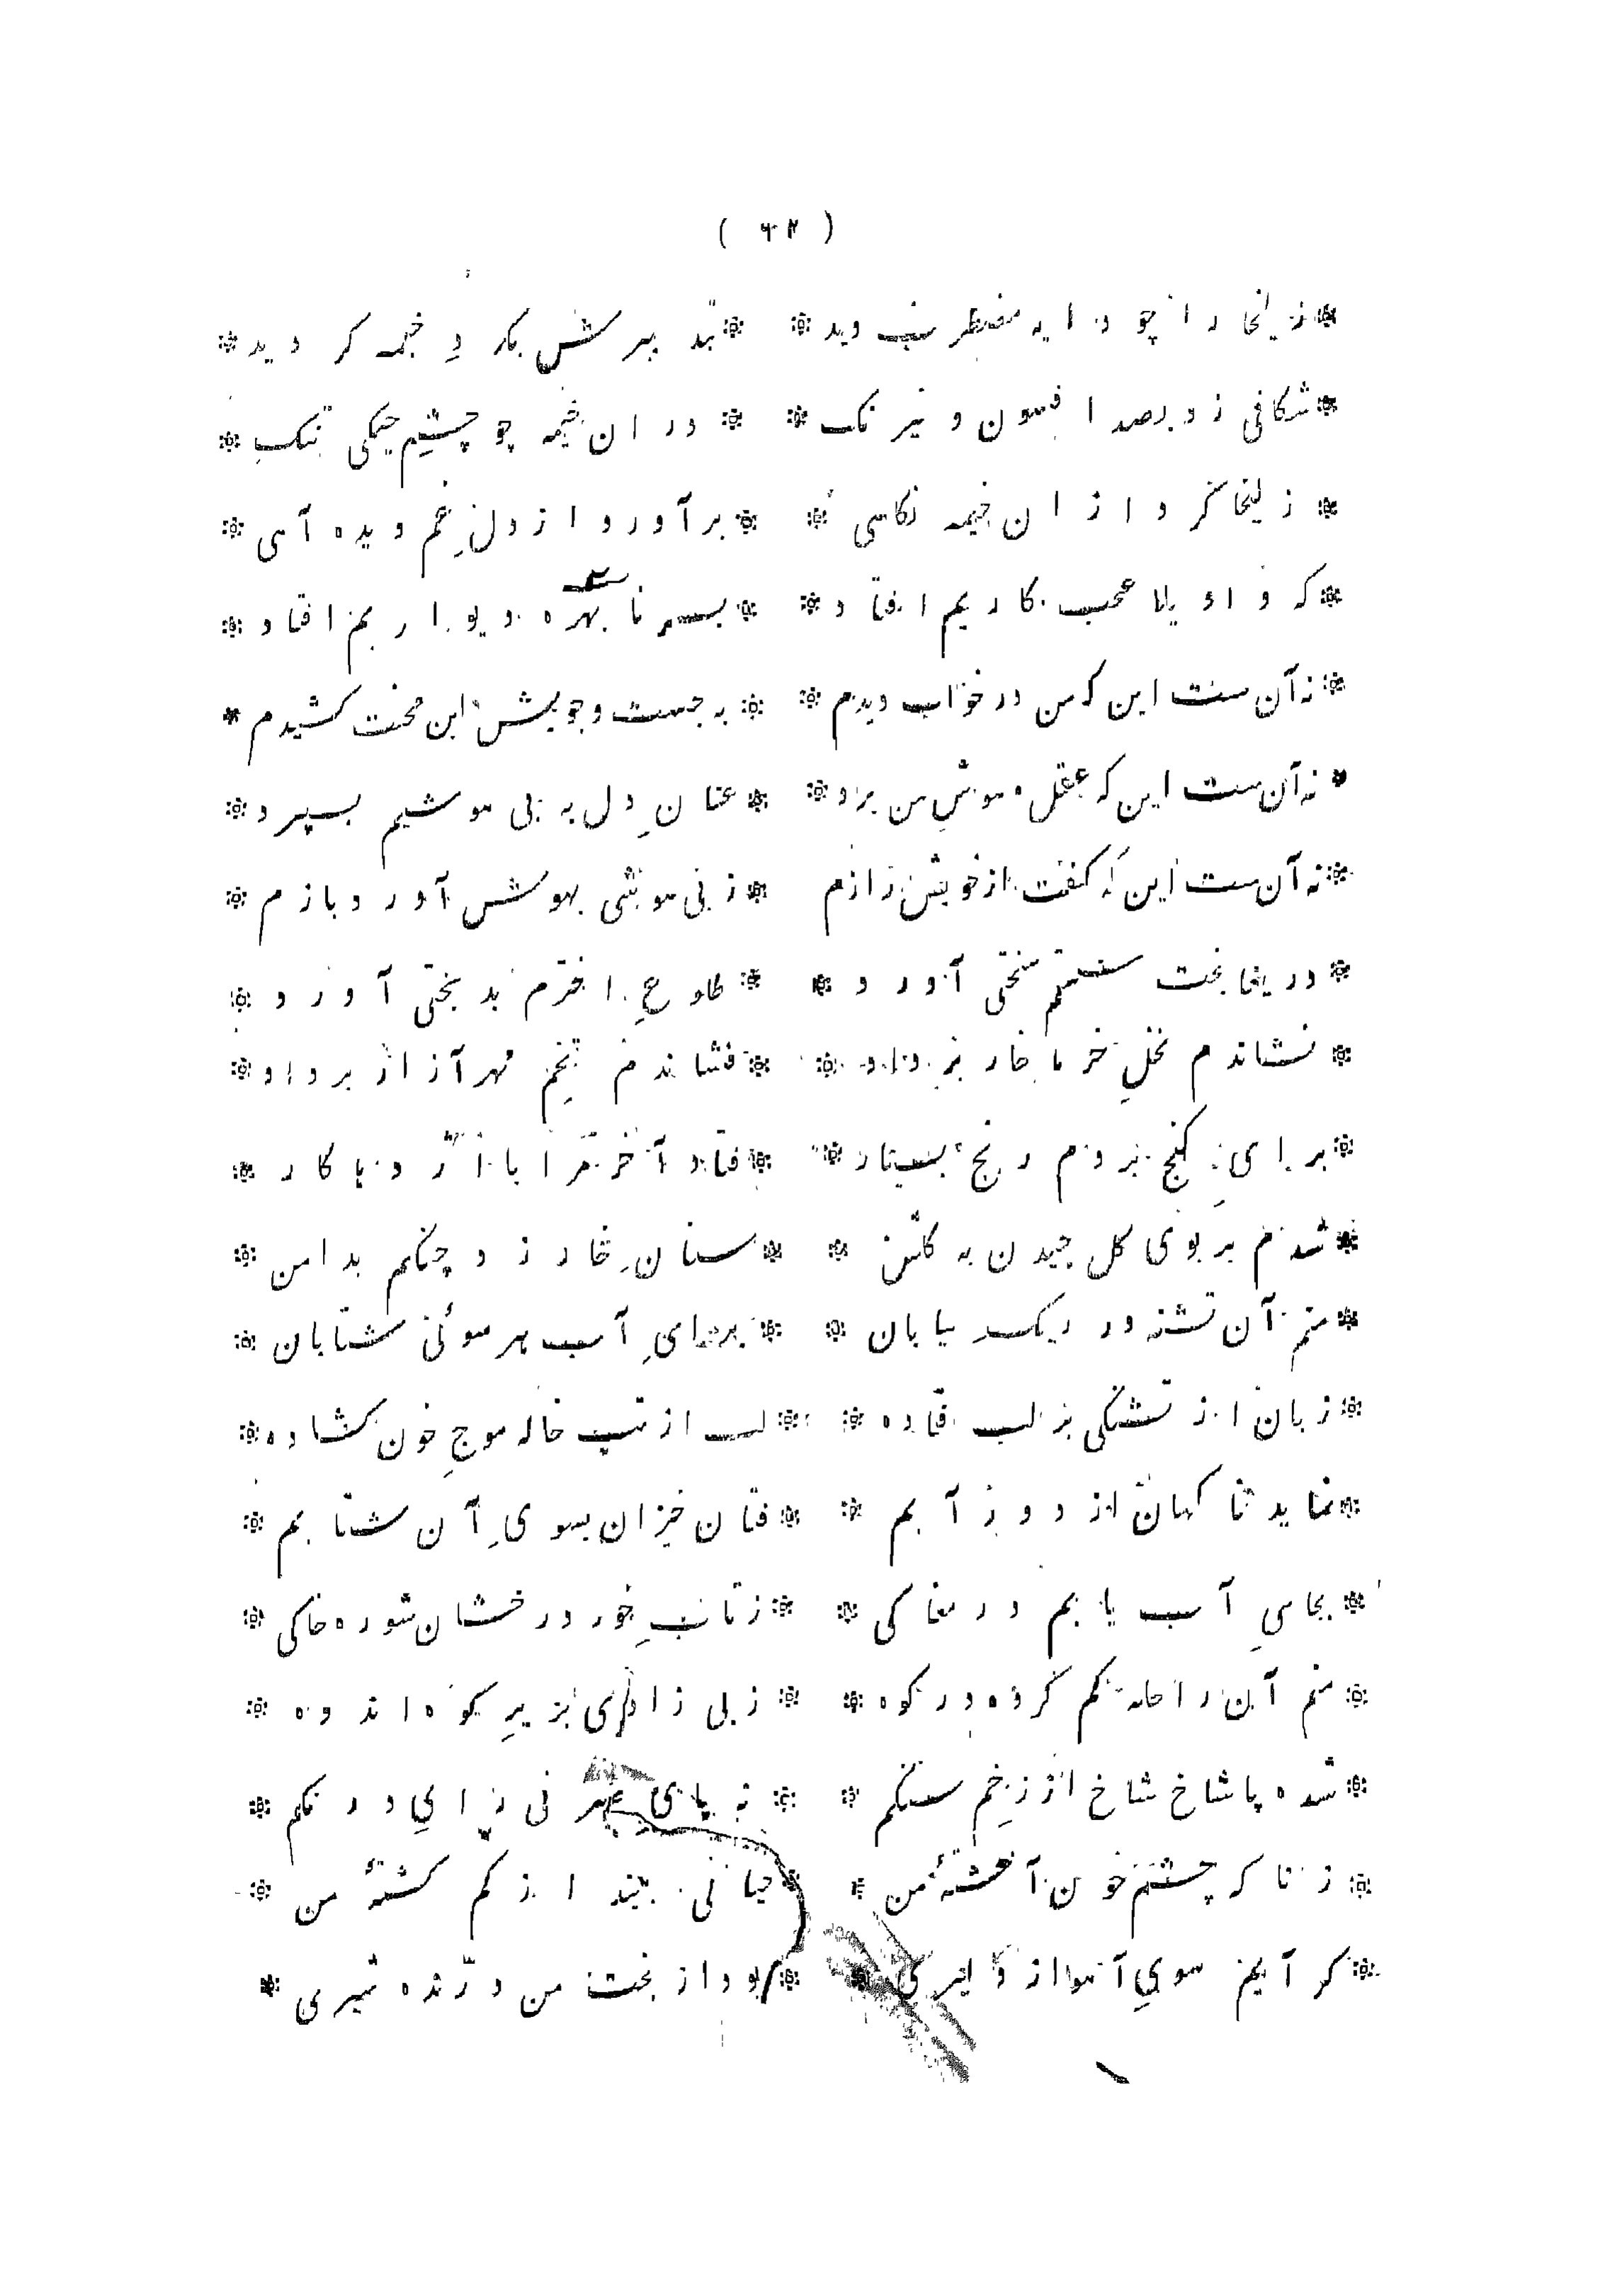 ( ۶۲ )
* زلیخا را چو دایه مضطرب دید * * تدبیرش بکرد خیمه کردید *
* شکافی زد بصد افسون و نیرنک * * دران خیمه چو چشم خیمکی تنک *
* زلیخا کرد ازان خیمه نکاهی * * برآورد از دل غم دیده آهی *
* که واویلا عجب کاریم افتاد * * بسر نا بهره دیواریم افتاد *
* نه آن ست این که من در خواب دیدم * * به جست و جویش این محنت کشیدم *
* نه آن ست این که عقل و هوش من برد * * عنان دل به بی هوشیم بسپرد *
* نه آن ست این که کفت از خویش رازم * ز بی هوشی بهوش آورد بازم *
* دریغا بخت سستم سختی آورد * * طلوع اخترم بد بختی آورد *
* نشاندم نخل خرما خار بر داد * * فشاندم تخم مهر آزار بر داد *
* برای کنج بردم رنج بسیار * * فتاد آخر مرا با اژدها کار *
* شدم بر بوی کل چیدن به کلشن * * سنان خار زد چنکم بدامن *
* منم آن تشنه در ریک بیابان * * برای آب هر سوئی شتابان *
* زبان از تشنکی بر لب فتاده * * لب از تب خاله موج خون کشاده *
* نماید ناکهان از دور آبم * * فتان خیزان بسوی آن شتابم *
* بجای آب یابم در مغاکی * * ز تاب خور درخشان شوره خاکی *
* منم آن راحله کم کرده در کوه * * ز بی زادی بزیر کوه اندوه *
* شده پا شاخ شاخ از زخم سنکم * * نه پای سیر نی رای درنکم *
* ز ناکه چشم خون آغشتهٔ من * * خیالی بیند از کم کشتهٔ من *
* کر آیم سوی آهو از دلیری * * بود از بخت من درّنده شیری *